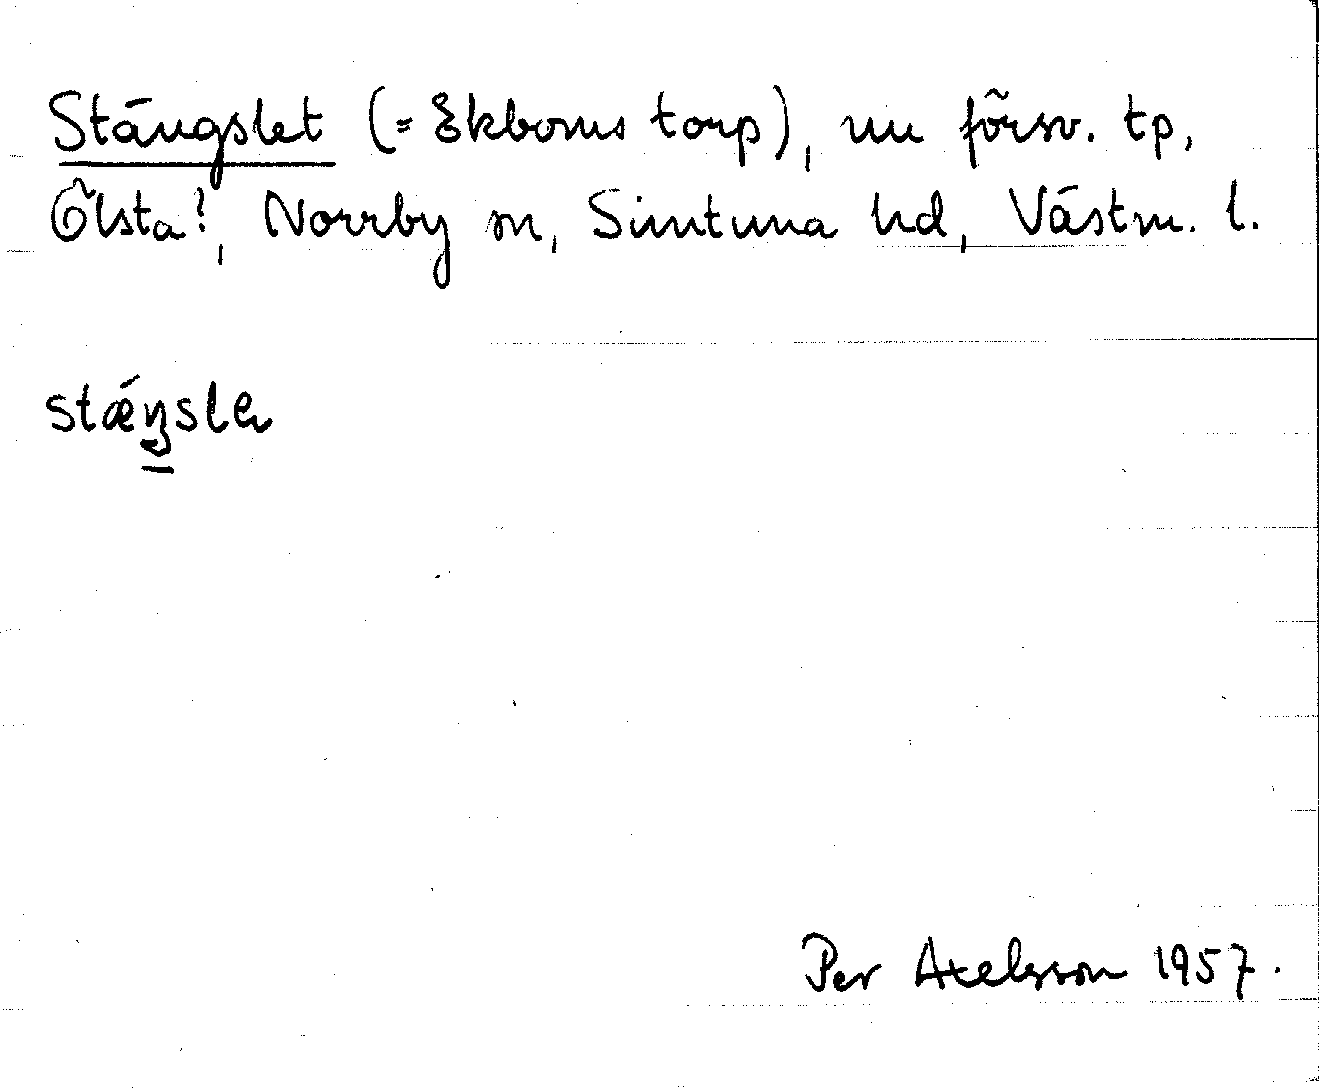 Stängslet (= Ekboms torp), nu försv. tp,
Ölsta?, Norrby sn, Simtuna hd, Västm. l.
Per Axelsson 1957.